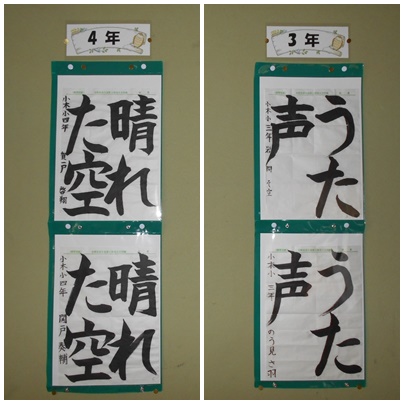 4年
晴れ
た空
小木小四年
晴れ
た空
小木小四年 関戸
3年
うた
声
小木小三年
うた
声
小木小三年 のう見さ羽